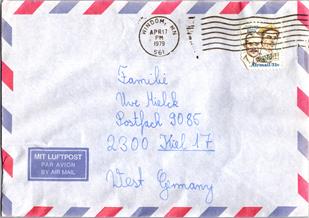 WINDOM, MN
APR 17
PM
1979
561
Airmail 31c
Familie
Uwe Hielck
Postfach 9085
2300 Kiel 17
West Germany
MIT LUFTPOST
PAR AVION
BY AIR MAIL